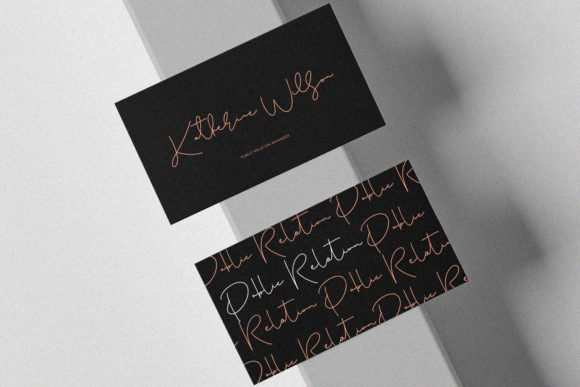 Katherine Wilson
PUBLIC RELATION MANAGER
Public Relation Public R
Public Relation Public
Relation Public Relation
Public Relation Public Re